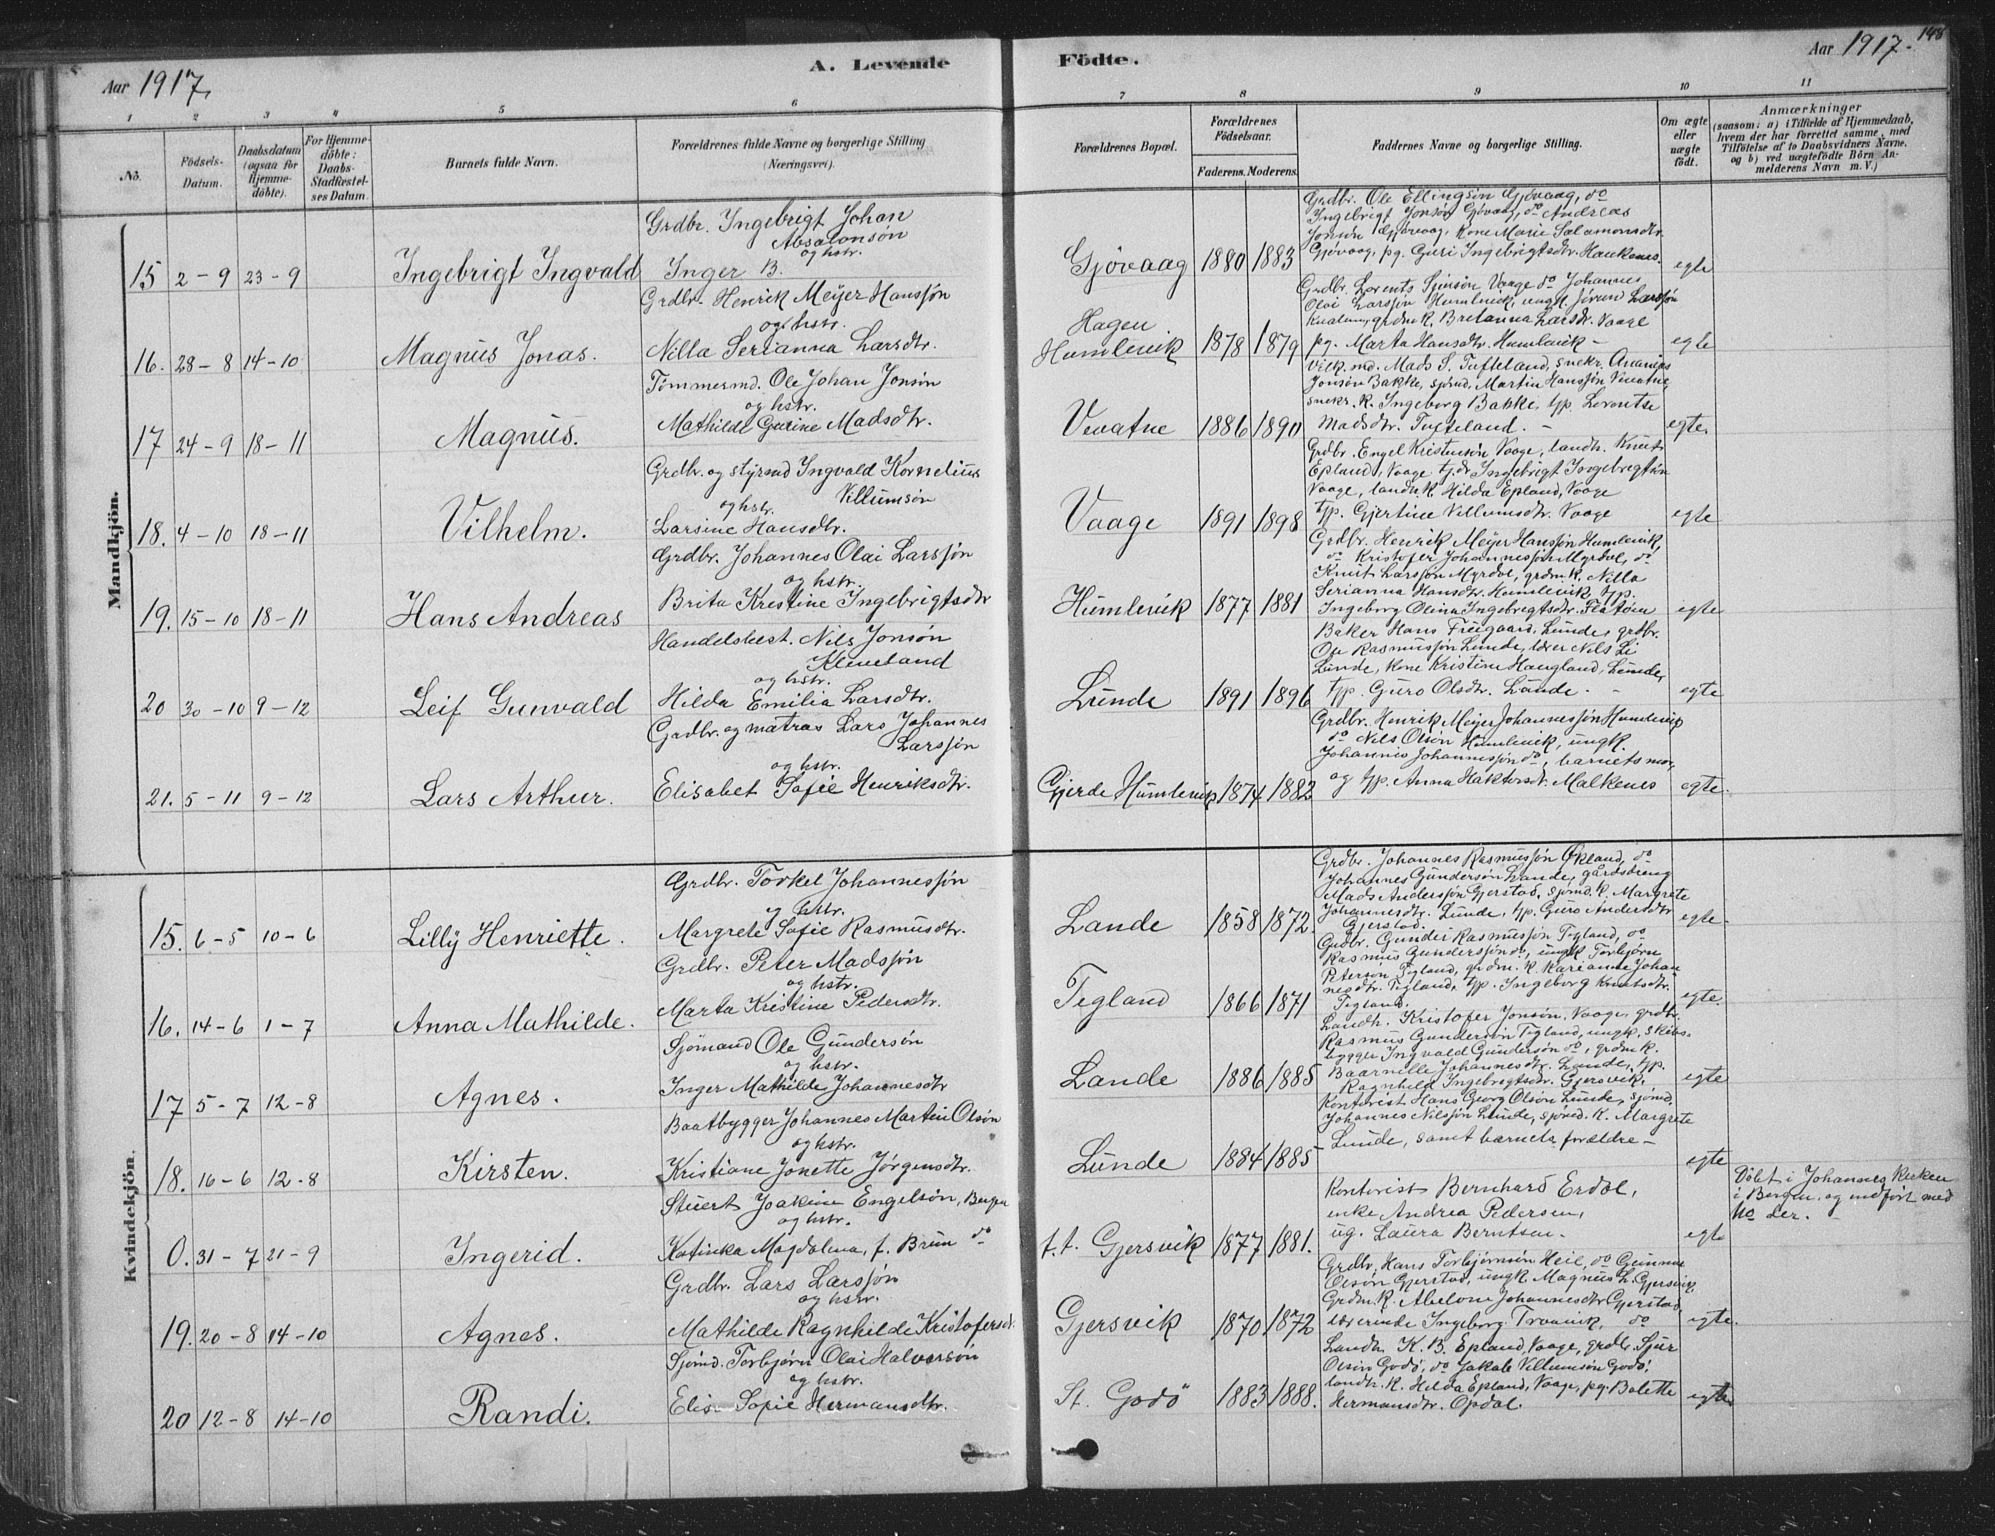 Aar 1917.
A. Levende
Födte.
Aar 1917.
148
1 2 3 4 5 6 7 8 9 10 11
No.
Födsels-
Datum.
Daabsdatum
(ogsaa for
Hjemme-
döbte).
For Hjemme-
döbte:
Daabs-
Stadfæstel-
ses Datum.
Barnets fulde Navn.
Forældrenes fulde Navne og borgerlige Stilling
(Næringsvei).
Forældrenes Bopæl.
Forældrenes
Födselsaar.
Faderens. Moderens.
Faddernes Navne og borgerlige Stilling.
Om ægte
eller
uægte
födt.
Anmærkninger
(saasom: a) i Tilfælde af Hjemmedaab,
hvem der har forrettet samme, med
Tilföielse af to Daabsvidners Navne.
og b) ved uægtefödte Börn An-
melderens Navn m. V.)
Mandkjön.
Grdbr. Ingebrigt Johan
Absalonsön
og hstr.
15 2-9 23-9 Ingebrigt Ingvald Inger B.
Gjövaag 1880 1883
Grdbr. Ole Ellingsön Gjövaag, do
Ingebrigt Jonsön Gjövaag, do Andreas
Jonsön Gjövaag, Kone Marie Salamonsdtr.
Gjövaag, pg. Guri Ingebrigtsdtr. Haukenes.
egte
Grdbr. Henrik Meyer Hanssön
og hstr.
16. 28-8 14-10 Magnus Jonas. Nilla Serianna Larsdtr.
Hagen
Humlevik 1878 1879
Grdbr. Lorents Simsön Vaage do Johannes
Olai Larssön Humlevik, ungk. Jörund Larssön
grdm. k. Bretanna Larsdtr. Vaage
pg. Marta Hansdtr. Humlevik -
egte
Tömmermd. Ole Johan Jonsön
og hstr.
17 24-9 18-11 Magnus. Mathilde Gurine Madsdtr.
Vevatne 1886 1890
Mads S. Tufteland, snekr. Ananias
Jonsön Bakke, sjömd. Martin Hanssön Vevatne,
snekr. k. Ingeborg Bakke, tjp. Lorentse
Madsdtr. Tufteland. -
egte
Grdbr. og styrmd Ingvald Kornelius
Villumsön
og hstr.
18. 4-10 18-11 Vilhelm. Larsine Hansdtr.
Vaage 1891 1898
Grdbr. Engel Kristensön Vaage, landh. Knut
Epland, Vaage tj.dr Ingebrigt Ingebregtsön
Vaage, landh.k. Hilda Epland, Vaage
tjp. Gjertine Villumsdtr. Vaage
egte
Grdbr. Johannes Olai Larssön
og hstr.
19. 15-10 18-11 Hans Andreas Brita Kristine Ingebrigtsdtr
Humlevik 1877 1881
Grdbr. Henrik Meyer Hanssön Humlevik,
do Kristofer Johannessön Myrdal, do
Knut Larssön Myrdal, grdm.k. Nilla
Serianna Hansdtr. Humlevik tjp.
Ingeborg Olina Ingebregtsdtr. Flatöen
egte
Handelsbest. Nils Jonsön
Kleveland
og hstr.
20 30-10 9-12 Leif Gunvald Hilda Emilia Larsdtr.
Lunde 1891 1896
Baker Hans Friigaard, Lunde, grdbr.
Ole Rasmussön Lunde, lærer Nils Li
Lunde, Kone Kristine Haugland, Lunde,
tjp. Guro Olsdtr. Lunde. -
egte
Gadbr. og matros Lars Johannes
Larssön
og hstr.
21. 5-11 9-12 Lars Arthur. Elisabet Sofie Henriksdtr.
Gjerde Humlevik 1874 1882
Grdbr. Henrik Meyer Johannessön Humlevik
do Nils Olsön Humlevik, ungk.
Johannes Johannessön do, barnets mor,
og tjp. Anna Haktorsdtr. Malkenes
egte.
Kvindekjön.
Grdbr. Torkel Johannessön
og hstr.
15. 6-5 10-6 Lilly Henriette. Margrete Sofie Rasmusdtr.
Lande 1858 1872.
Grdbr. Johannes Rasmussön Økland, do
Johannes Gundersön Lande, gårdsdreng
Mads Anderssön Gjerstad, sjömd. k. Margrete
Johannesdtr. Lunde, tjp. Guro Andersdtr
Gjerstad.
egte
Grdbr. Peter Madssön
og hstr.
16. 14-6 1-7 Anna Mathilde. Marta Kristine Pedersdtr.
Tegland 1866 1871
Grdbr. Gunder Rasmussön Tegland, do
Rasmus Gunderssön do, ungk. Torbjörn
Petersön Tegland, grdm. k. Marianne Johan
nesdtr. Tegland, tjp. Ingeborg Knutsdtr.
Tegland.
egte.
Sjömand Ole Gundersön
og hstr.
17 5-7 12-8 Agnes. Inger Mathilde Johannesdtr
Lande 1886 1885
Landh. Kristofer Jonsön, Vaage, grdbr.
Rasmus Gundersön Tegland, ungk. skibs-
bygger Ingvald Gundersön do, grdm k.
Baarnille Johannesdtr. Lunde, tjp.
Ragnhild Ingebregtsdtr. Gjersvik,
egte
Baatbygger Johannes Martin Olsön
og hstr.
18. 16-6 12-8 Kirsten. Kristiane Jonette Jörgensdtr.
Lunde 1884 1885
Kontorist Hans Georg Olsön Lunde, sjömd.
Johannes Nilssön Lunde, sjömd. k. Margrete
Lunde, samt barnets forældre -
egte
Stuert Joakim Engelsön, Bergen
og hstr.
0. 31-7 21-9 Ingerid. Katinka Magdalena, f. Brun do
t.t. Gjersvik 1877 1881.
Kontorist Bernhard Erdal,
enke Andrea Pedersen,
ug. Laura Berntsen.
egte
Döbt i Johannes kirken
i Bergen, og indfört med
No der. -
Grdbr. Lars Larssön
og hstr.
19. 20-8 14-10 Agnes. Mathilde Ragnhilde Kristofersdt.
Gjersvik 1870 1872
Grdbr. Hans Torbjörnsön Heil, do Gunnar
Olsön Gjerstad, ungk. Magnus L. Gjersvik,
Grdm.k. Abelone Johannesdtr Gjerstad,
lærerinde Ingeborg Trovik, do
egte.
Sjömd. Torbjörn Olai Halvorsön
og hstr.
20 12-8 14-10 Randi. Elis Sofie Hermansdtr.
St. Godö 1883 1888.
Landh. K. B. Epland, Vaage, grdbr. Sjur
Olsön Godö, do Jakob Villumsön Godö,
landh. k. Hilda Epland, Vaage, pg. Bolette
Hermansdtr. Opdal.
egte